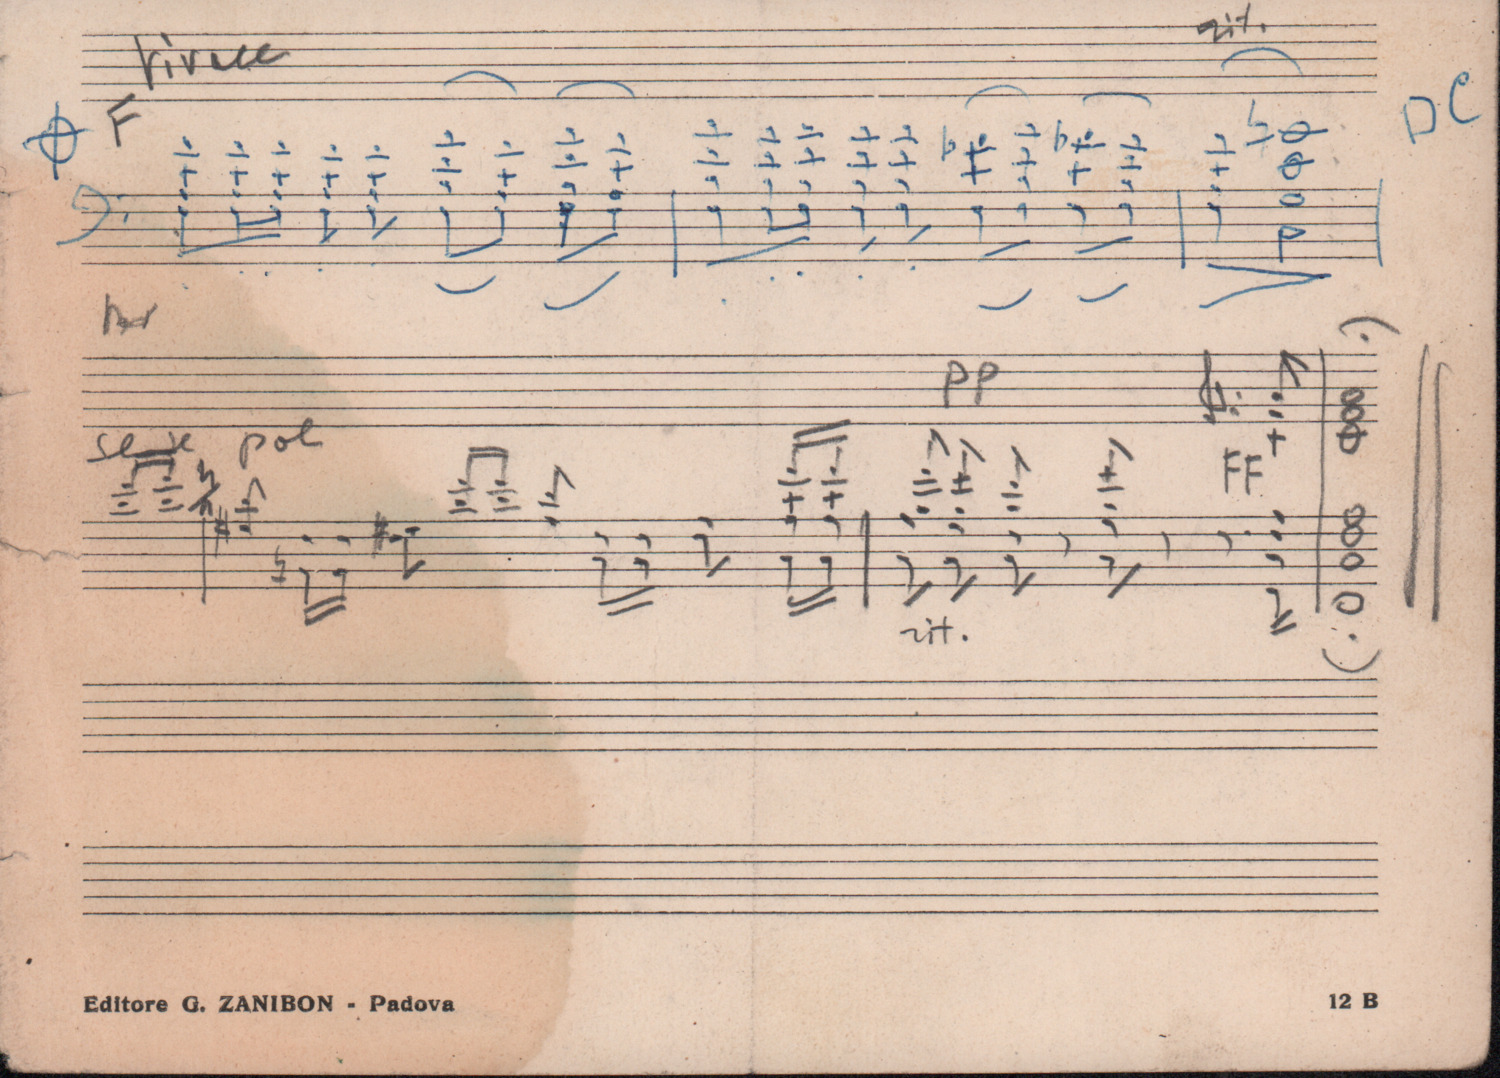 rit.
Vivace
F
DC
p
pp
FF
rit.
Editore G. ZANIBON - Padova
12 B